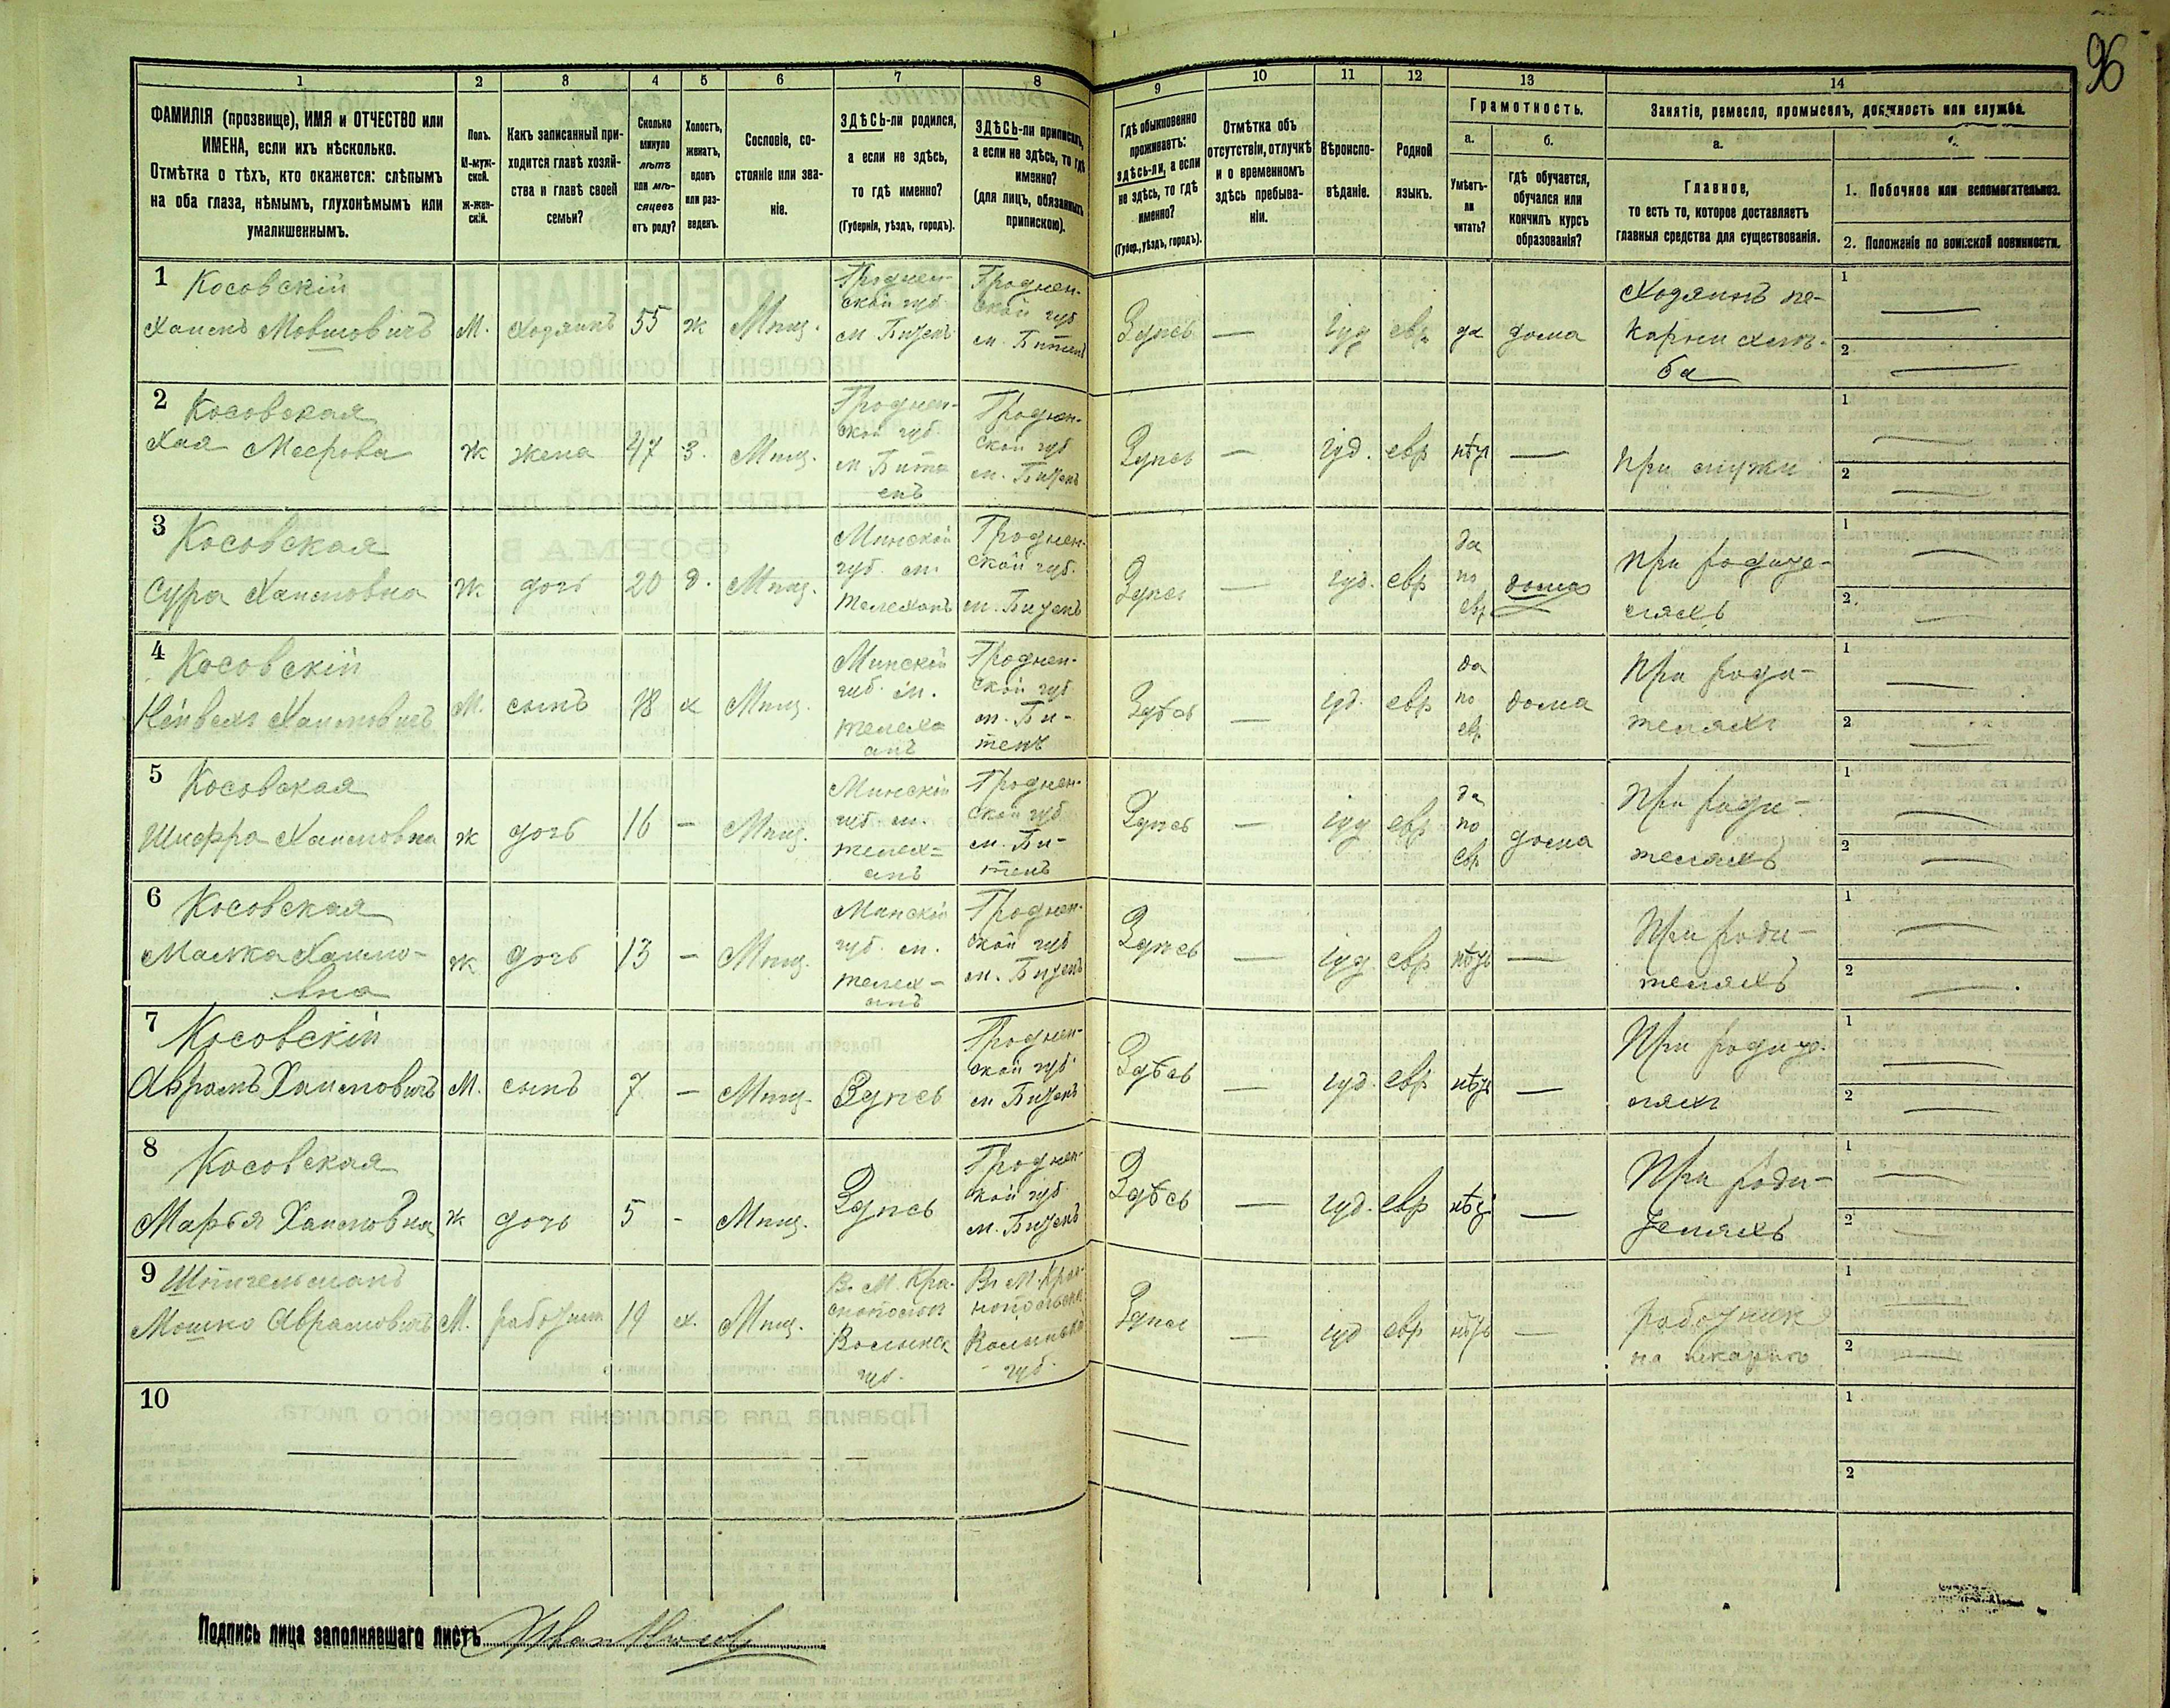 96
1 2 3 4 5 6 7 8 9 10 11 12 13 14
ФАМИЛІЯ (прозвище), ИМЯ и ОТЧЕСТВО или
ИМЕНА, если ихъ нѣсколько.
Отмѣтка о тѣхъ, кто окажется: слѣпымъ
на оба глаза, нѣмымъ, глухонѣмымъ или
умалишеннымъ.
Полъ.
М-муж-
ской.
Ж-жен-
скій.
Какъ записанный при-
ходится главѣ хозяй-
ства и главѣ своей
семьи?
Сколько
минуло
лѣтъ
или мѣ-
сяцевъ
отъ роду?
Холостъ,
женатъ,
вдовъ
или раз-
веденъ.
Сословіе, со-
стояніе или зва-
ніе.
ЗДѢСЬ-ли родился,
а если не здѣсь,
то гдѣ именно?
(Губернія, уѣздъ, городъ).
ЗДѢСЬ-ли приписанъ,
а если не здѣсь, то гдѣ
именно?
(для лицъ, обязанныхъ
припискою).
Гдѣ обыкновенно
проживаетъ:
здѣсь-ли, а если
не здѣсь, то гдѣ
именно?
(Губер., уѣздъ, городъ).
Отмѣтка объ
отсутствіи, отлучкѣ
и о временномъ
здѣсь пребыва-
ніи.
Вѣроиспо-
вѣданіе.
Родной
языкъ.
Грамотность.
а.
Умѣетъ-
ли
читать?
б.
гдѣ обучается,
обучался или
кончилъ курсъ
образованія?
Занятіе, ремесло, промыселъ, должность или служба.
а.
Главное,
то есть то, которое доставляетъ
главныя средства для существованія.
1. Побочное или вспомогательное.
2. Положеніе по воинской повинности.
1 Косовскій
Хаимъ Мовшовичъ М. Хозяинъ 55 ж Мѣщ.
Гроднен-
ской губ
м. Битенъ
Гроднен-
ской губ
м. Битенъ
Здѣсь — іуд евр да дома
Хозяинъ пе-
карни хлѣ-
ба
1 —
2 —
2 Косовская
Хая Меерова ж жена 47 з. Мѣщ.
Гроднен-
ской губ.
м Бит
енъ
Гроднен-
ской губ
м. Битенъ
Здѣсь — іуд. евр нѣт —
При мужи
1 —
2 —
3 Косовская
Сура Хаимовна ж дочь 20 д. Мѣщ.
Минской
губ. м.
Телеханъ
Гроднен-
ской губ.
м. Битенъ
Здѣсь — іуд. евр
да
по
евр
дома
При родите-
ляхъ
1 —
2 —
4 Косовскій
Хаимовичъ М. сынъ 18 х Мѣщ.
Минскій
губ. м.
телеха
анъ
Гроднен-
ской губ
м. Би-
тенъ
Здѣсь — іуд. евр
да
по
евр
дома
При роди-
теляхъ
1 —
2 —
5 Косовская
Шифра Хаимовна ж дочь 16 — Мѣщ.
Минскій
губ м.
телех=
анъ
Гроднен-
ской губ
м. Би-
тенъ
Здѣсь — іуд евр
да
по
евр
дома
При роди-
теляхъ
1 —
2 —
6 Косовская
Малка Хаимо-
вна
ж дочь 13 — Мѣщ.
Минскій
губ. м.
телех-
анъ
Гроднен-
ской губ
м. Битенъ
Здѣсь — іуд евр нѣтъ —
При роди-
теляхъ
1 —
2 —
7 Косовскій
Абрамъ Хаимовичъ М. сынъ 7 — Мѣщ. Здѣсь
Гроднен-
ской губ.
м Битенъ
Здѣсь — іуд. евр нѣтъ —
При родите-
ляхъ
1 —
2 —
8 Косовская
Марья Хаимовна ж дочь 5 - Мѣщ. Здѣсь
Гроднен-
ской губ
м. Битенъ
Здѣсь — іуд. евр нѣт —
При роди-
теляхъ
1 —
2 —
9
Мошко Абрамовичъ М. работник 19 х. Мѣщ.
В. М. Кра-
снополъ
Волынск
губ.
Въ М. Крас-
нопольск
Волынской
губ.
Здѣсь — іуд евр нѣтъ —
работник
на пекарню
1 —
2 —
10
1
2
Подпись лица заполнявшаго листъ